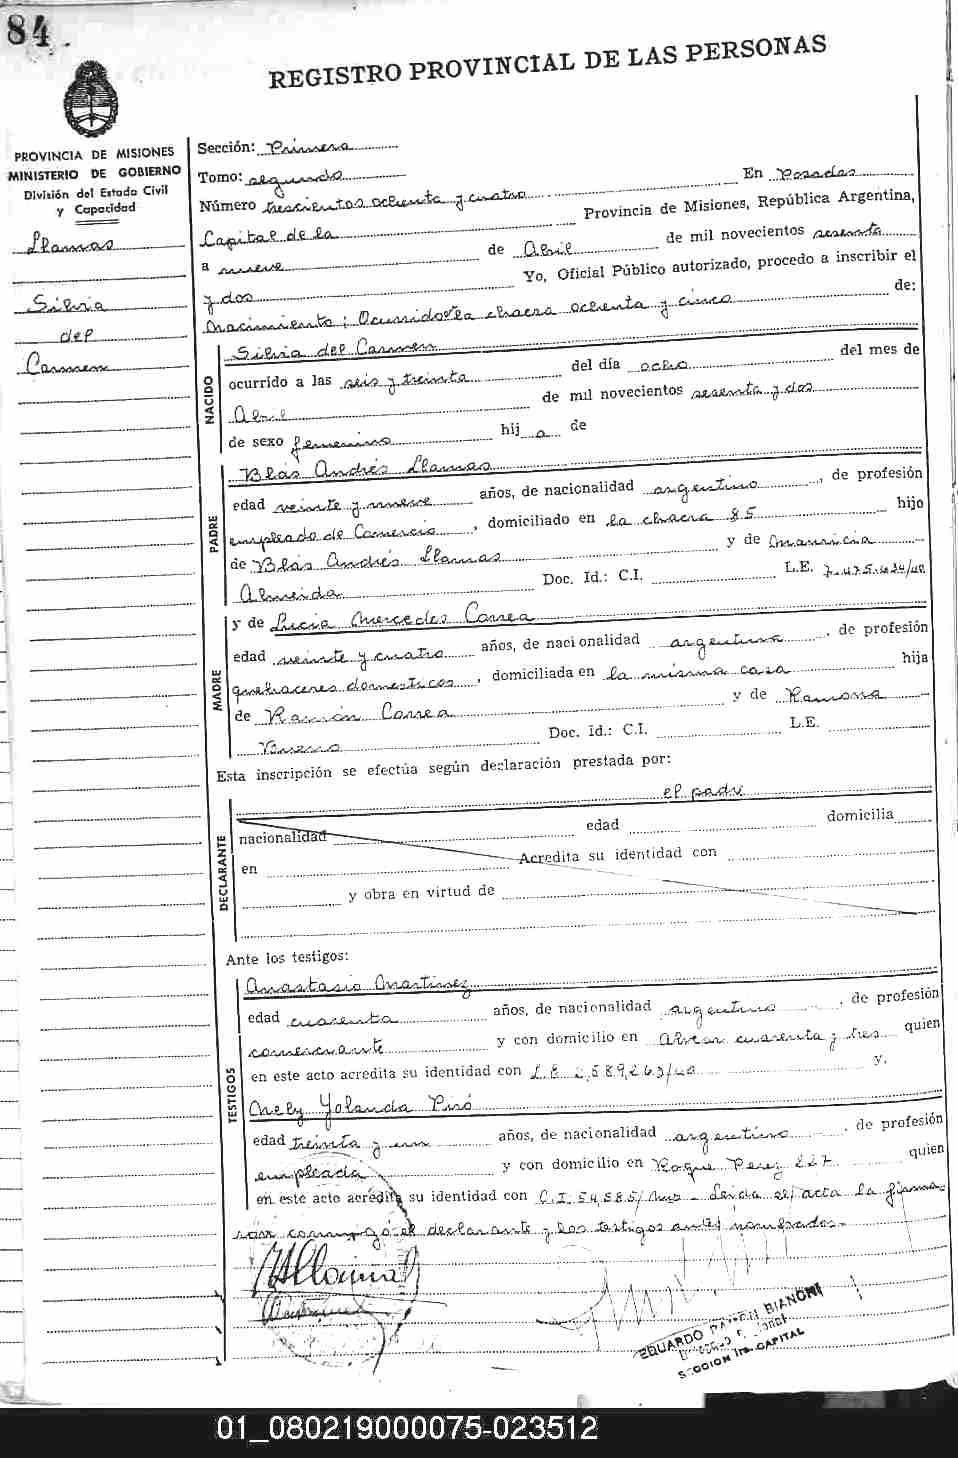 84
REGISTRO PROVINCIAL DE LAS PERSONAS
PROVINCIA DE MISIONES
MINISTERIO DE GOBIERNO
División del Estado Civil
y Capacidad
Llamas
Silvia
del
Carmen
Sección: Primera
Tomo: segundo
Número trescientos ochenta y cuatro En Posadas
Capital de la Provincia de Misiones, República Argentina,
a nueve de Abril de mil novecientos sesenta
y dos Yo, Oficial Público autorizado, procedo a inscribir el
nacimiento; Ocurrido chacra ochenta y cinco de:
NACIDO
Silvia del Carmen
ocurrido a las seis y treinta del día ocho del mes de
Abril de mil novecientos sesenta y dos
de sexo femenino hij a de
PADRE
Blás Andrés Llamas
edad veinte y nueve años, de nacionalidad argentino, de profesión
empleado de Comercio, domiciliado en la chacra 85 hijo
de Blás Andrés Llamas y de Mauricia
Almeida Doc. Id.: C.I. L.E. 7.475.434/40
MADRE
y de Lucia Mercedes Correa
edad veinte y cuatro años, de nacionalidad argentina, de profesión
quehaceres domesticos, domiciliada en la misma casa hija
de Ramón Correa y de Ramona
Doc. Id.: C.I. L.E.
Esta inscripción se efectúa según declaración prestada por:
el padre
DECLARANTE
nacionalidad edad domicilia
en Acredita su identidad con
y obra en virtud de
Ante los testigos:
TESTIGOS
Anastasio Martinez
edad cuarenta años, de nacionalidad argentino, de profesión
comerciante y con domicilio en Alvear cuarenta y tres quien
en este acto acredita su identidad con L.E. 2,589,263/40 y,
Nely Yolanda Piró
edad treinta y un años, de nacionalidad argentino, de profesión
empleada y con domicilio en Roque Perez 227 quien
en este acto acredita su identidad con C.I. 54,585/Mnes - Leida el acta la firma-
ron conmigo el declarante y los testigos antes nombrados.-
EDUARDO RAMON BIANCHI
SECCION 1ra. CAPITAL
01_080219000075-023512